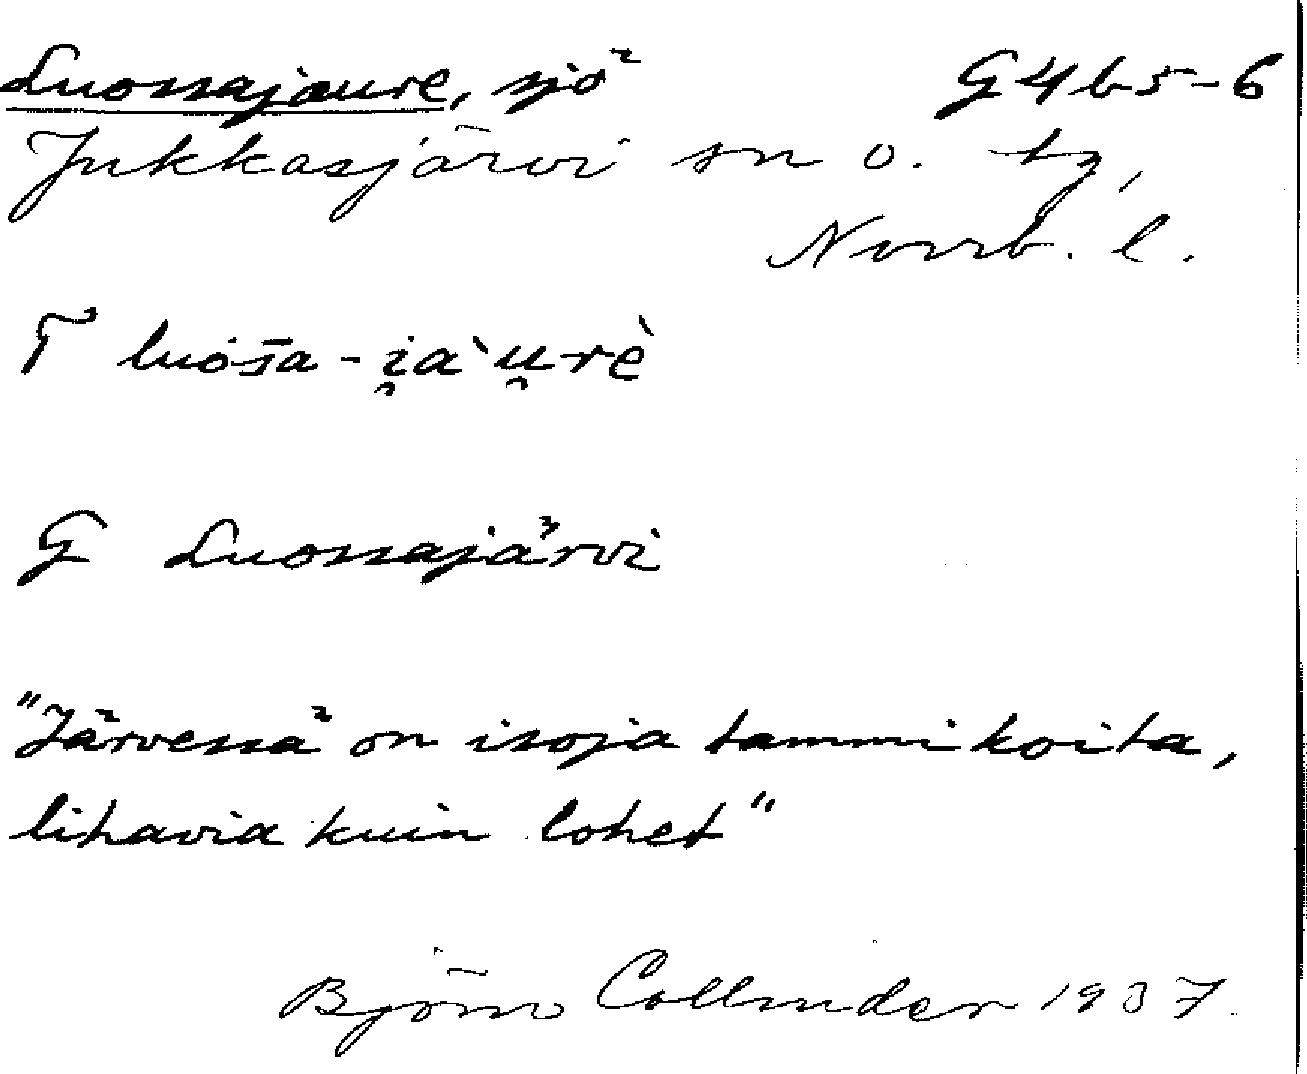 Luossajaure, sjö G4b5-6
Jukkasjärvi sn o. tg,
Norrb. l.
T luos̄a-i̯a`u̯rè
G Luossajärvi
"Järvessä on isoja tammikoita,
lihavia kuin lohet"
Björn Collinder 1937.